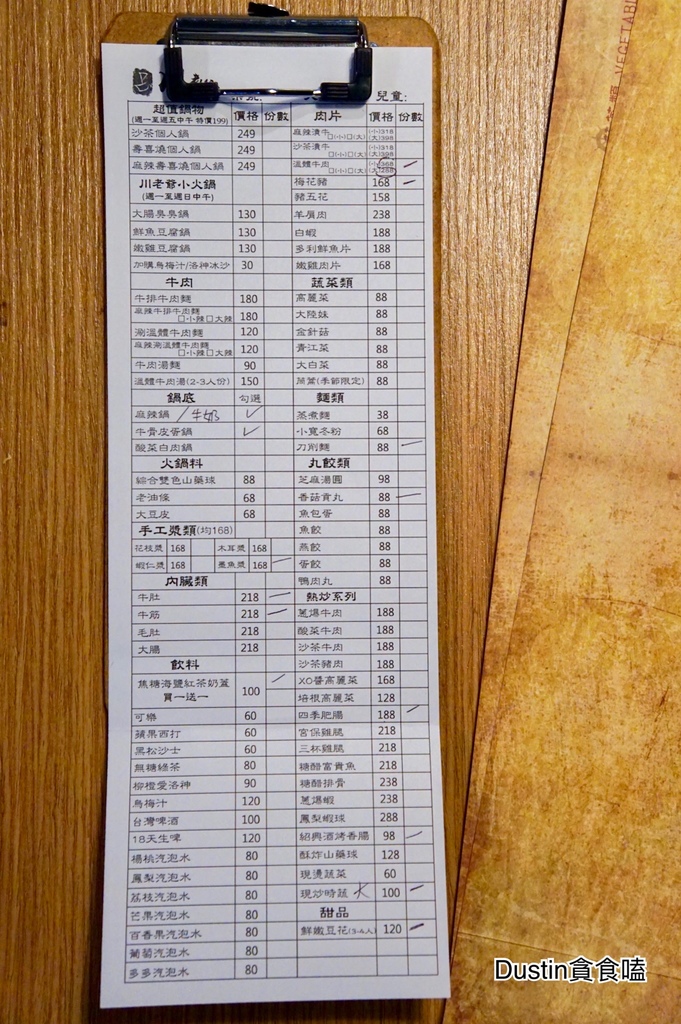 兒童:
超值鍋物
(週一至週五中午 特價199)
價格 份數
沙茶個人鍋 249
壽喜燒個人鍋 249
麻辣壽喜燒個人鍋 249
川老爺小火鍋
(週一至週日中午)
大腸臭臭鍋 130
鮮魚豆腐鍋 130
嫩雞豆腐鍋 130
加購烏梅汁/洛神冰沙 30
牛肉
牛排牛肉麵 180
麻辣牛排牛肉麵
□小辣□大辣 180
涮溫體牛肉麵 120
麻辣涮溫體牛肉麵
□小辣□大辣 120
牛肉湯麵 90
溫體牛肉湯(2-3人份) 150
鍋底 勾選
麻辣鍋 /牛奶 ✓
牛骨皮蛋鍋 ✓
酸菜白肉鍋
火鍋料
綜合雙色山藥球 88
老油條 68
大豆皮 68
手工漿類(均168)
花枝漿 168 木耳漿 168
蝦仁漿 168 墨魚漿 168
內臟類
牛肚 218
牛筋 218
毛肚 218
大腸 218
飲料
焦糖海鹽紅茶奶蓋
買一送一 100
可樂 60
蘋果西打 60
黑松沙士 60
無糖綠茶 80
柳橙愛洛神 90
烏梅汁 120
台灣啤酒 100
18天生啤 120
楊桃汽泡水 80
鳳梨汽泡水 80
荔枝汽泡水 80
芒果汽泡水 80
百香果汽泡水 80
葡萄汽泡水 80
多多汽泡水 80
肉片 價格 份數
麻辣漬牛
□(小)□(大) (小)318
(大)398
沙茶漬牛
□(小)□(大) (小)318
(大)398
溫體牛肉
□(小)□(大)
梅花豬 168
豬五花 158
羊肩肉 238
白蝦 188
多利鮮魚片 188
嫩雞肉片 168
蔬菜類
高麗菜 88
大陸妹 88
金針菇 88
青江菜 88
大白菜 88
茼蒿(季節限定) 88
麵類
蒸煮麵 38
小寬冬粉 68
刀削麵 88
丸餃類
芝麻湯圓 98
香菇貢丸 88
魚包蛋 88
魚餃 88
燕餃 88
蛋餃 88
鴨肉丸 88
熱炒系列
蔥爆牛肉 188
酸菜牛肉 188
沙茶牛肉 188
沙茶豬肉 188
XO醬高麗菜 168
培根高麗菜 128
四季肥腸 188
宮保雞腿 218
三杯雞腿 218
糖醋富貴魚 218
糖醋排骨 238
蔥爆蝦 238
鳳梨蝦球 288
紹興酒烤香腸 98
酥炸山藥球 128
現燙蔬菜 60
現炒時蔬 水 100
甜品
鮮嫩豆花(3-4人) 120
VEGETABL
Dustin貪食嗑